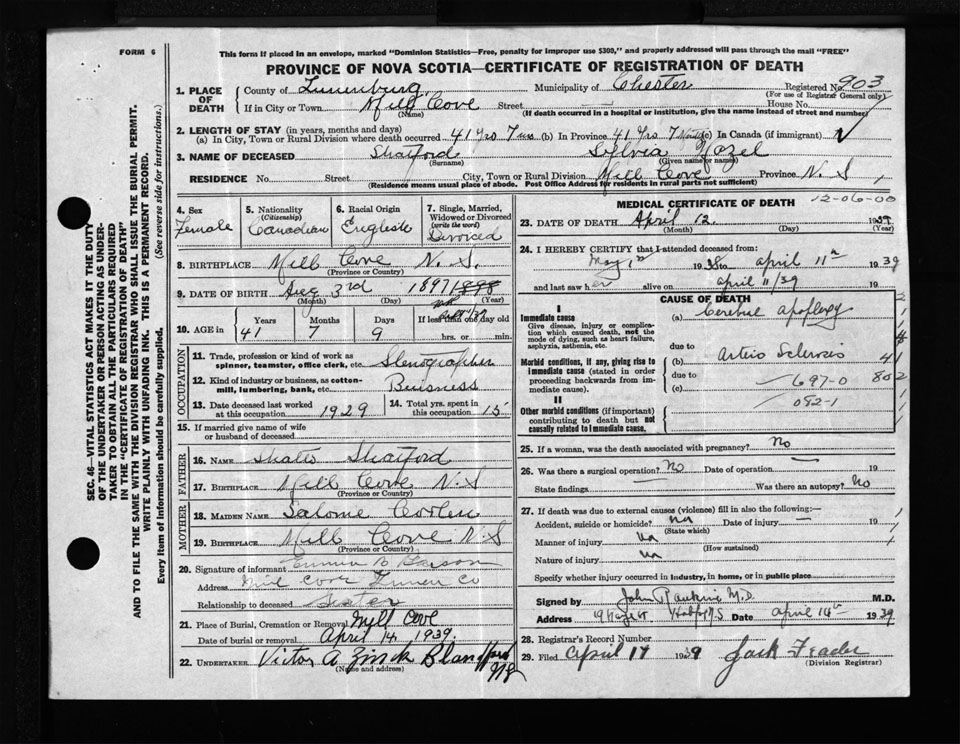 FORM 6
This form if placed in an envelope, marked "Dominion Statistics—Free, penalty for improper use $300," and properly addressed will pass through the mail "FREE"
PROVINCE OF NOVA SCOTIA—CERTIFICATE OF REGISTRATION OF DEATH
1. PLACE OF DEATH
County of Lunenburg Municipality of Chester Registered No. 903
(For use of Registrar General only)
If in City or Town Mill Cove Street House No.
(Name) (If death occurred in a hospital or institution, give the name instead of street and number)
2. LENGTH OF STAY (in years, months and days)
(a) In City, Town or Rural Division where death occurred 41 yrs 7 ms (b) In Province 41 yrs 7 (c) In Canada (if immigrant)
3. NAME OF DECEASED Shatford Sylvia Hazel
(Surname) (Given name or names)
RESIDENCE No. Street City, Town or Rural Division Mill Cove Province N. S.
(Residence means usual place of abode. Post Office Address for residents in rural parts not sufficient)
4. Sex Female
5. Nationality (Citizenship) Canadian
6. Racial Origin English
7. Single, Married, Widowed or Divorced (write the word) Divorced
8. BIRTHPLACE Mill Cove N. S.
(Province or Country)
9. DATE OF BIRTH Aug 3rd 1897 1898
(Month) (Day) (Year)
10. AGE in Years Months Days If less than one day old
41 7 9 hrs. or min.
OCCUPATION
11. Trade, profession or kind of work as spinner, teamster, office clerk, etc. Stenographer
12. Kind of industry or business, as cotton-mill, lumbering, bank, etc. Buisness
13. Date deceased last worked at this occupation 1929
14. Total yrs. spent in this occupation 15
15. If married give name of wife or husband of deceased
FATHER
16. NAME Shatford
17. BIRTHPLACE Mill Cove N. S
(Province or Country)
MOTHER
18. MAIDEN NAME Salome
19. BIRTHPLACE Mill Cove N. S
(Province or Country)
20. Signature of informant Emma B
Address Mill Cove Lunen Co
Relationship to deceased Sister
21. Place of Burial, Cremation or Removal Mill Cove
Date of burial or removal April 14 1939.
22. UNDERTAKER Victor A Zinck Blandford NS
(Name and address)
MEDICAL CERTIFICATE OF DEATH
12-06-00
23. DATE OF DEATH April 12 1939
(Month) (Day) (Year)
24. I HEREBY CERTIFY that I attended deceased from:
May 1st 1938 to April 11th 1939
and last saw her alive on April 11/39
CAUSE OF DEATH
I
Immediate cause
Give disease, injury or complication which caused death, not the mode of dying, such as heart failure, asphyxia, asthenia, etc.
(a) Cerebral apoplexy
due to
Morbid conditions, if any, giving rise to immediate cause (stated in order proceeding backwards from immediate cause).
(b) Arterio Sclerosis
due to
(c) 697-0
802
082-1
II
Other morbid conditions (if important) contributing to death but not causally related to immediate cause.
25. If a woman, was the death associated with pregnancy? No
26. Was there a surgical operation? No Date of operation 19
State findings Was there an autopsy? No
27. If death was due to external causes (violence) fill in also the following:—
Accident, suicide or homicide? na Date of injury 19
(State which)
Manner of injury na
(How sustained)
Nature of injury na
Specify whether injury occurred in industry, in home, or in public place
Signed by John Rankine M.D. M.D.
Address Hubbards N.S Date April 14th 1939
28. Registrar's Record Number
29. Filed April 17 1939 Jack
(Division Registrar)
SEC. 46—VITAL STATISTICS ACT MAKES IT THE DUTY
OF THE UNDERTAKER OR PERSON ACTING AS UNDERTAKER
TO OBTAIN ALL THE PARTICULARS REQUIRED
IN THE "CERTIFICATE OF REGISTRATION OF DEATH"
AND TO FILE THE SAME WITH THE DIVISION REGISTRAR WHO SHALL ISSUE THE BURIAL PERMIT.
WRITE PLAINLY WITH UNFADING INK. THIS IS A PERMANENT RECORD.
Every item of information should be carefully supplied. (See reverse side for instructions.)